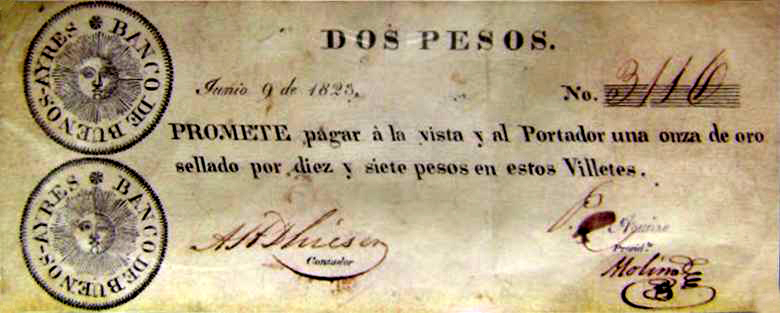 BANCO DE BUENOS-AYRES
DOS PESOS.
Junio 9 de 1823.
No. 3116
PROMETE pagar à la vista y al Portador una onza de oro
sellado por diez y siete pesos en estos Villetes.
BANCO DE BUENOS-AYRES
Contador
Aguire
Presid.te
Molina